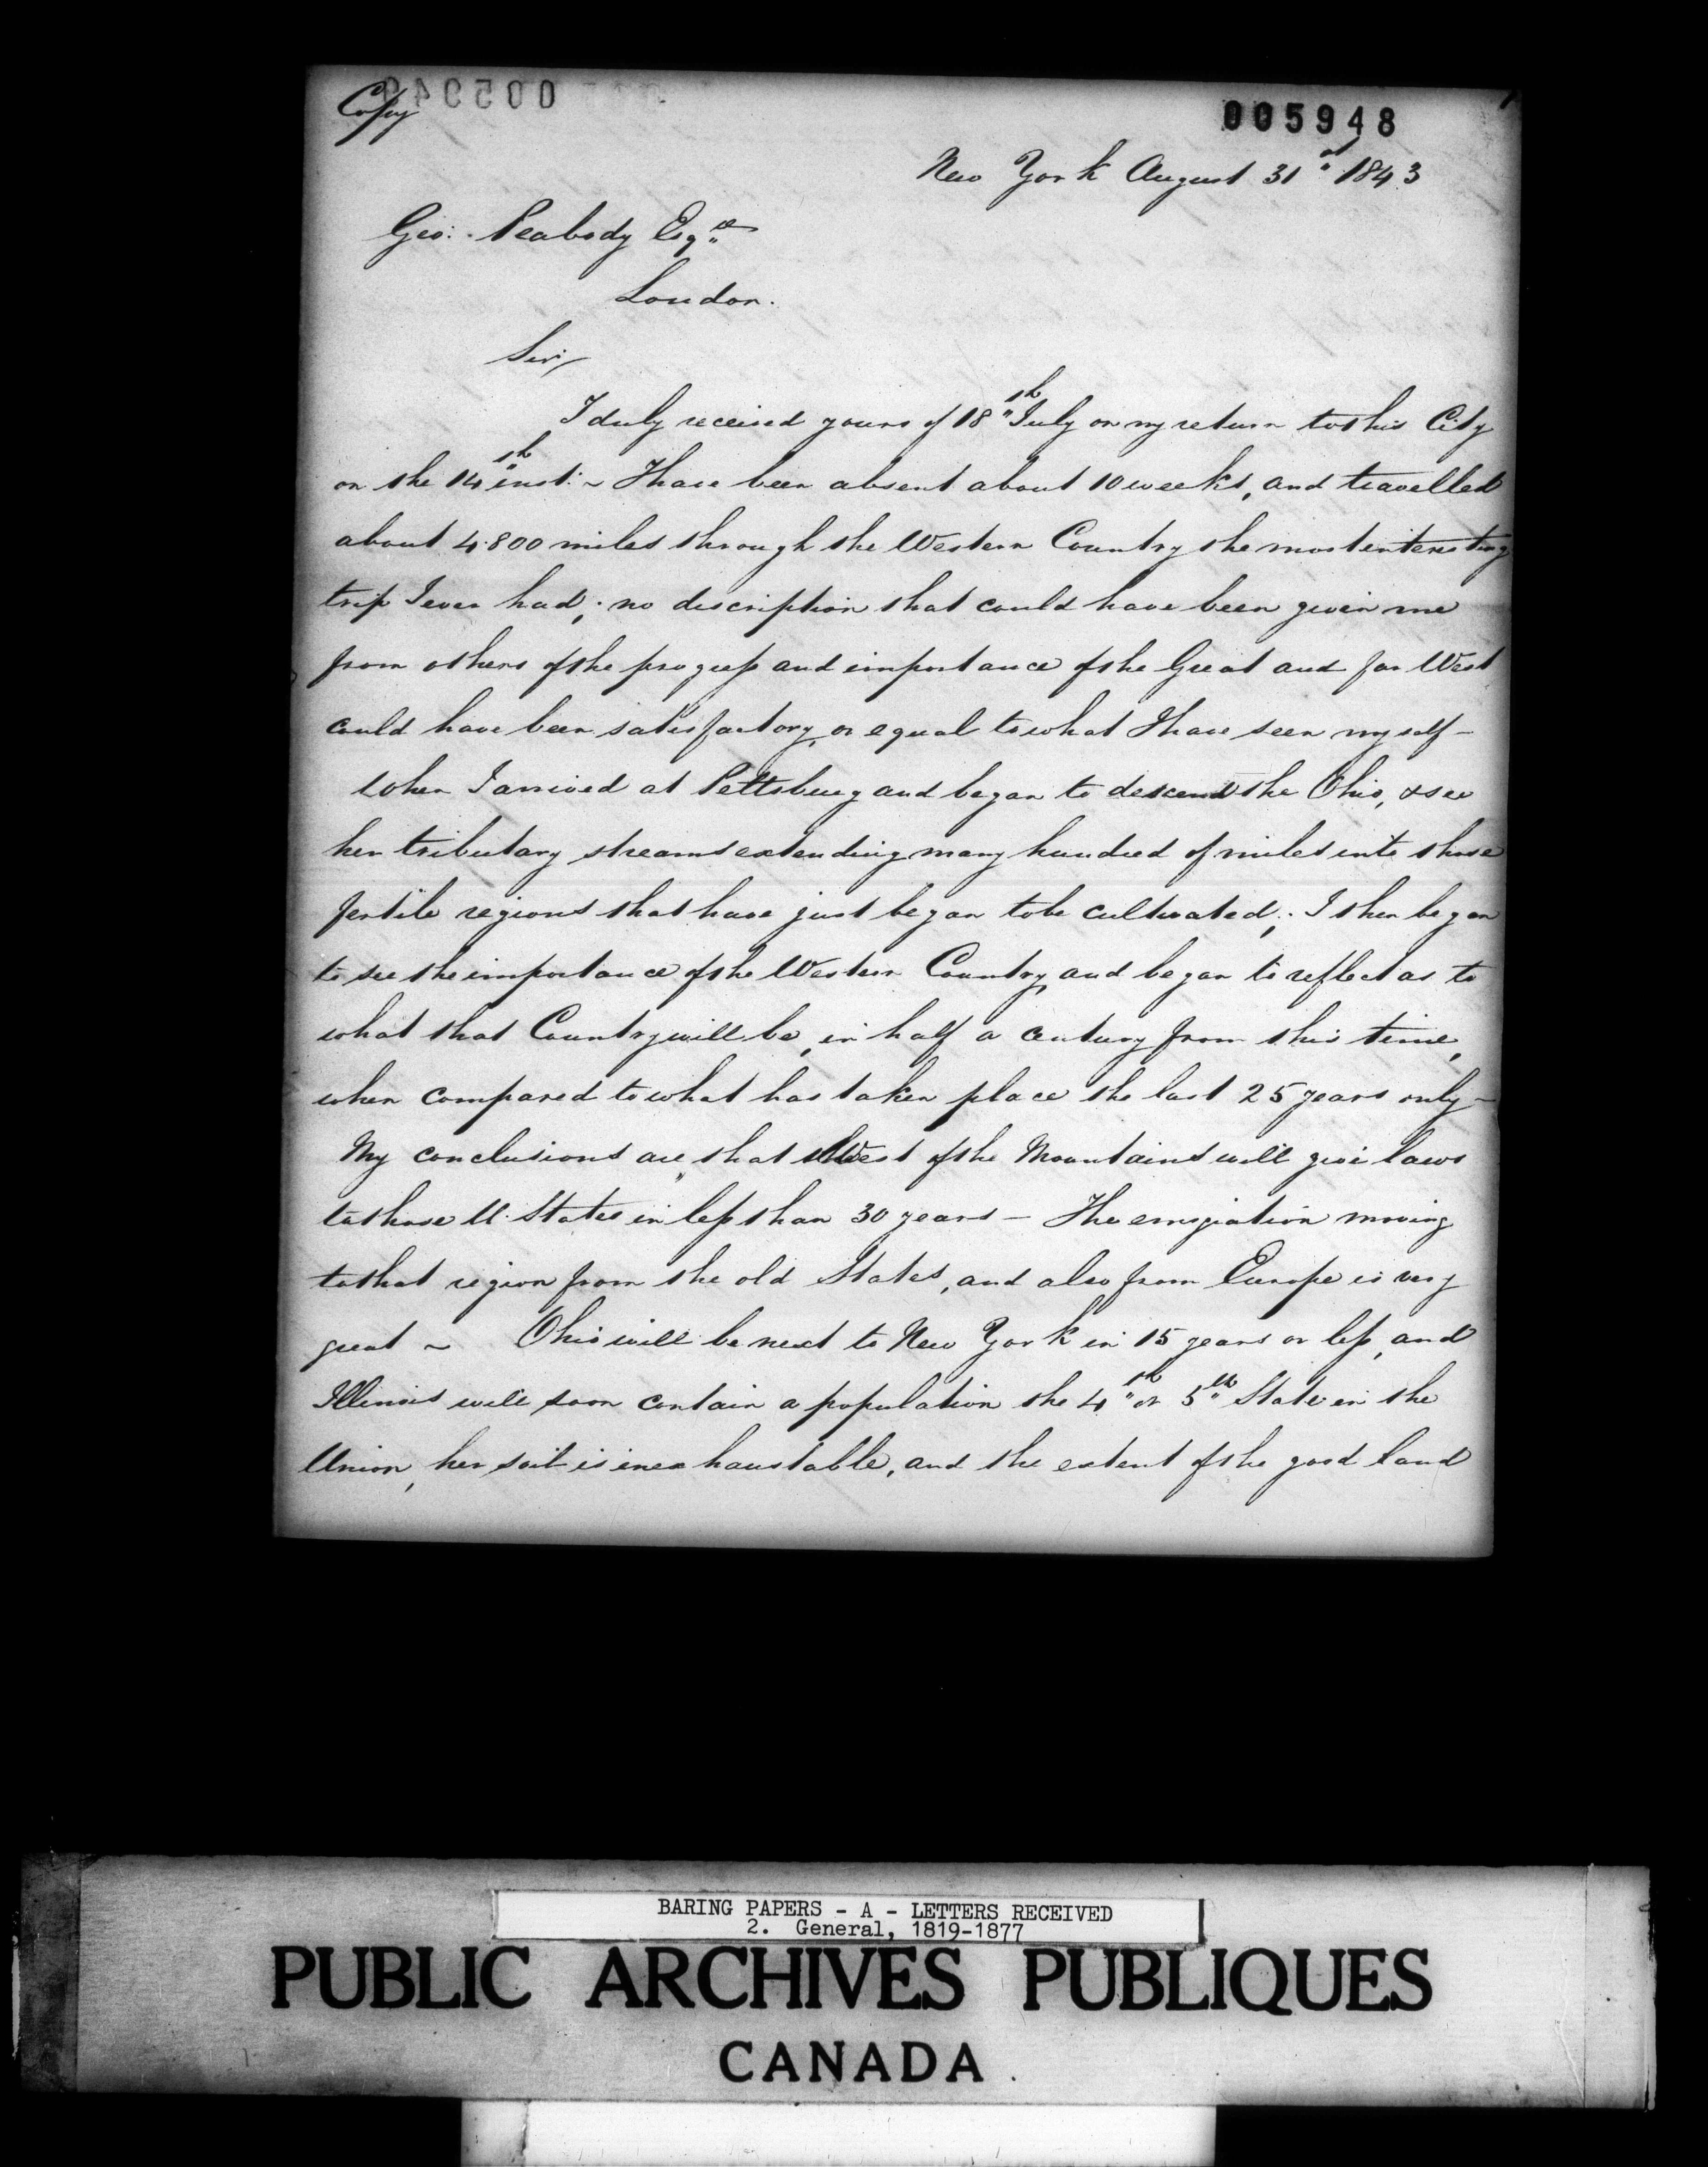 Copy
005948
New York August 31st 1843
Geo: Peabody Esqre
London.
Sir/
I duly received yours of 18th July on my return to this City
on the 14th inst: ~ I have been absent about 10 weeks, and travelled
about 4.800 miles through the Western Country the most interesting
trip I ever had; no description that could have been given me
from others of the progress and importance of the Great and far West
could have been satisfactory, or equal to what I have seen myself -
When I arrived at Pettsburg and began to descend the Ohio, & see
her tributary streams extending many hundred of miles into those
fertile regions that have just began to be cultivated; I then began
to see the importance of the Western Country, and began to reflect as to
what that Country will be, in half a century from this time,
when compared to what has taken place the last 25 years only -
My conclusions are, that West of the Mountains will give laws
to those U. States in less than 30 years - The emigration moving
to that region from the old States, and also from Europe is very
great ~ Ohio will be next to New York in 15 years or less, and
Illinois will soon contain a population the 4th or 5th State in the
Union, her soil is inexhaustable, and the extent of the good land
BARING PAPERS - A - LETTERS RECEIVED
2. General, 1819-1877
PUBLIC ARCHIVES PUBLIQUES
CANADA